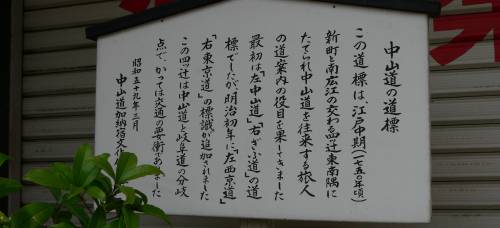 中山道の道標
この道標は、江戸中期(一七五〇年頃)
新町と南広江の交わる四ッ辻東南隅に
たてられ中山道を往来する旅人
の道案内の役目を果してきました
最初は「左中山道」「右ぎふ道」の道
標でしたが、明治初年に「左西京道」
「右東京道」の標識が追加されました
この四ッ辻は中山道と岐阜道の分岐
点で、かっては交通の要衝でありました
昭和五十九年三月
中山道加納宿文